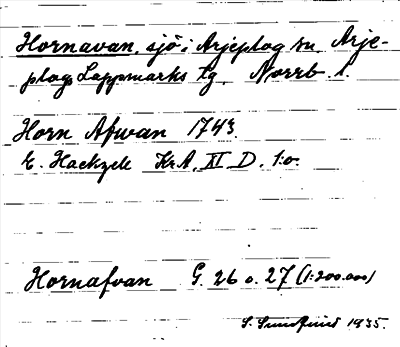 Hornavan, sjö i Arjeplog sn. Arje-
plogs Lappmarks tg. Norrb. l.
Horn Afwan 1743.
E. Hackzell Kr. A. XI D. 1:o.
Hornafvan G. 26 o. 27 (1:200.000)
S. 1935.